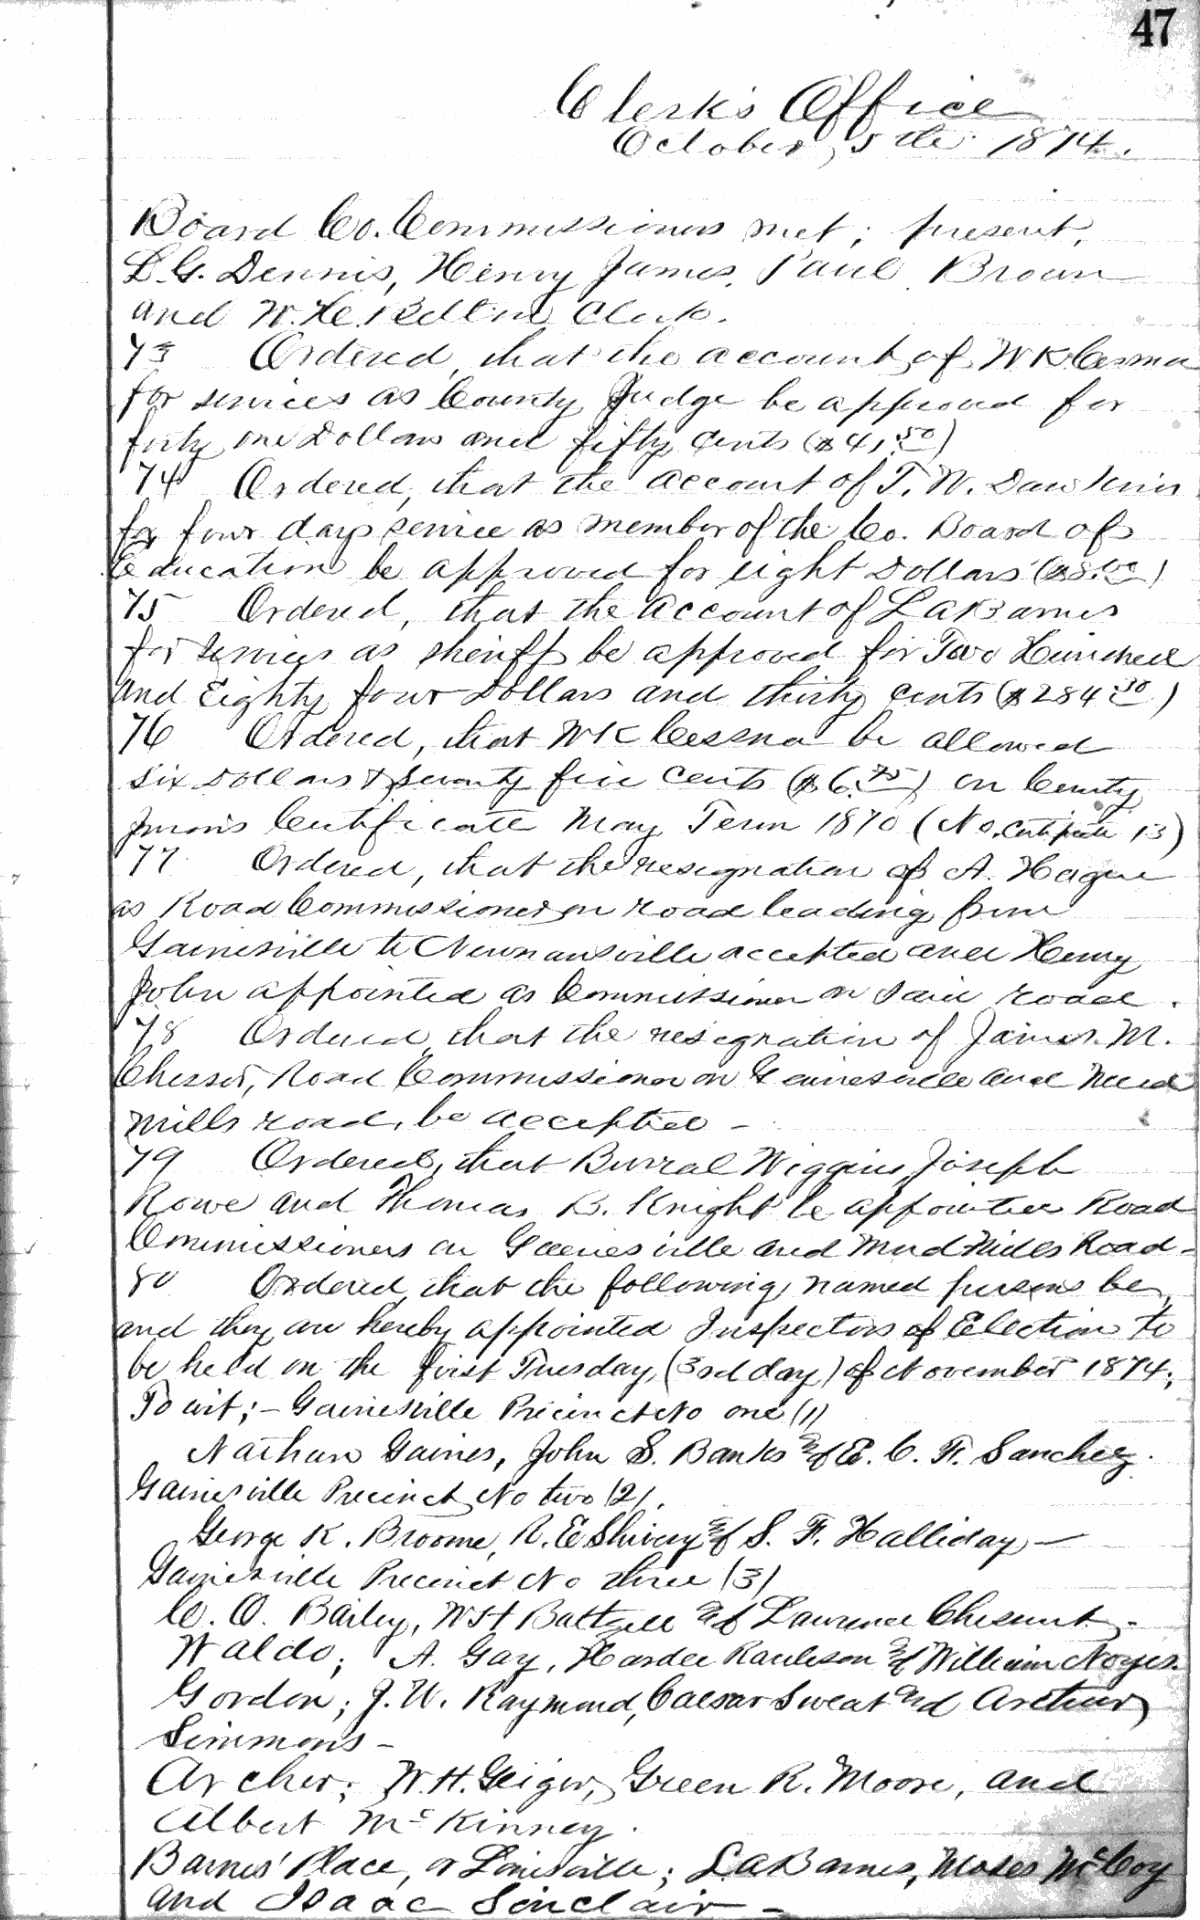 47
Clerk's Office
October, 5th 1874.
Board Co. Commissioners met; present,
L. G. Dennis, Henry James, Paul Brown
and W. H. Belton Clerk.
73 Ordered, that the account of W K Cessna
for services as County Judge be approved for
forty one Dollars and fifty cents ($41.50)
74 Ordered, that the account of T. W. Dawkins
for four days service as member of the Co. Board of
Education be approved for eight Dollars ($8.00)
75 Ordered, that the account of L A Barnes
for services as sheriff be approved for Two Hundred
and Eighty four Dollars and thirty cents ($284.30)
76 Ordered, that W K Cessna be allowed
six Dollars & seventy five cents ($6.75) on County
Juror's Certificate May Term 1870 (No. Certificate 13)
77 Ordered, that the resignation of A. Hague
as Road Commissioner on road leading from
Gainesville to Newnansville accepted and Henry
John appointed as Commissioner on said road.
78 Ordered, that the resignation of James M.
Chesser, Road Commissioner on Gainesville and Mud
Mills road, be accepted -
79 Ordered, that Burral Wiggins, Joseph
Rowe and Thomas B. Knight be appointed Road
Commissioners on Gainesville and Mud Mills Road -
80 Ordered, that the following named persons be,
and they are hereby appointed Inspectors of Election to
be held on the first Tuesday, (3rd day) of November 1874;
To wit; - Gainesville Precinct No one (1)
Nathan Gaines, John S. Banks and E. C. F. Sanchez.
Gainesville Precinct, No two (2).
George K. Broome, R. E Shivery and S. F. Halliday -
Gainesville Precinct No three (3)
C. O. Bailey, W H Baltzell and Lawrence Chesnut -
Waldo; A. Gay, Hardee Raulerson and William Noyes.
Gordon; J. W. Raymond, Caesar Sweat and Arthur
Simmons -
Archer; W. H. Geiger, Green R. Moore, and
Albert McKinney.
Barnes' Place, or Louisville; L A Barnes, Moses McCoy
and Isaac Sinclair -